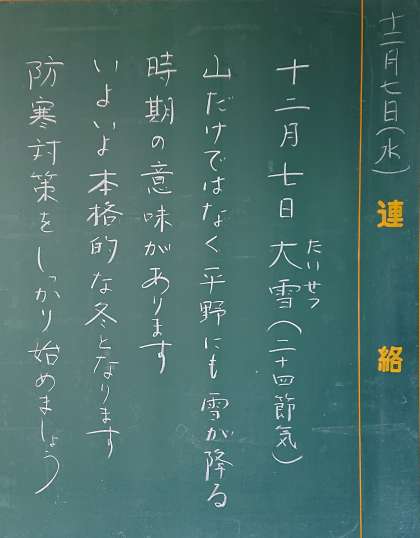 十二月七日(水)
連絡
十二月七日 大雪(二十四節気)
たいせつ
山だけではなく平野にも雪が降る
時期の意味があります
いよいよ本格的な冬となります
防寒対策をしっかり始めましょう